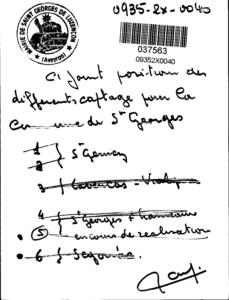 0935-2X-0040
MAIRIE DE SAINT GEORGES DE LUZENCON
(Aveyron)
037563
09352X0040
Ci joint position des
différents captage pour la
Commune de St Georges
1
2 } St Geniez
3
4 } St Georges & hameaux
5 en cours de realisation
6